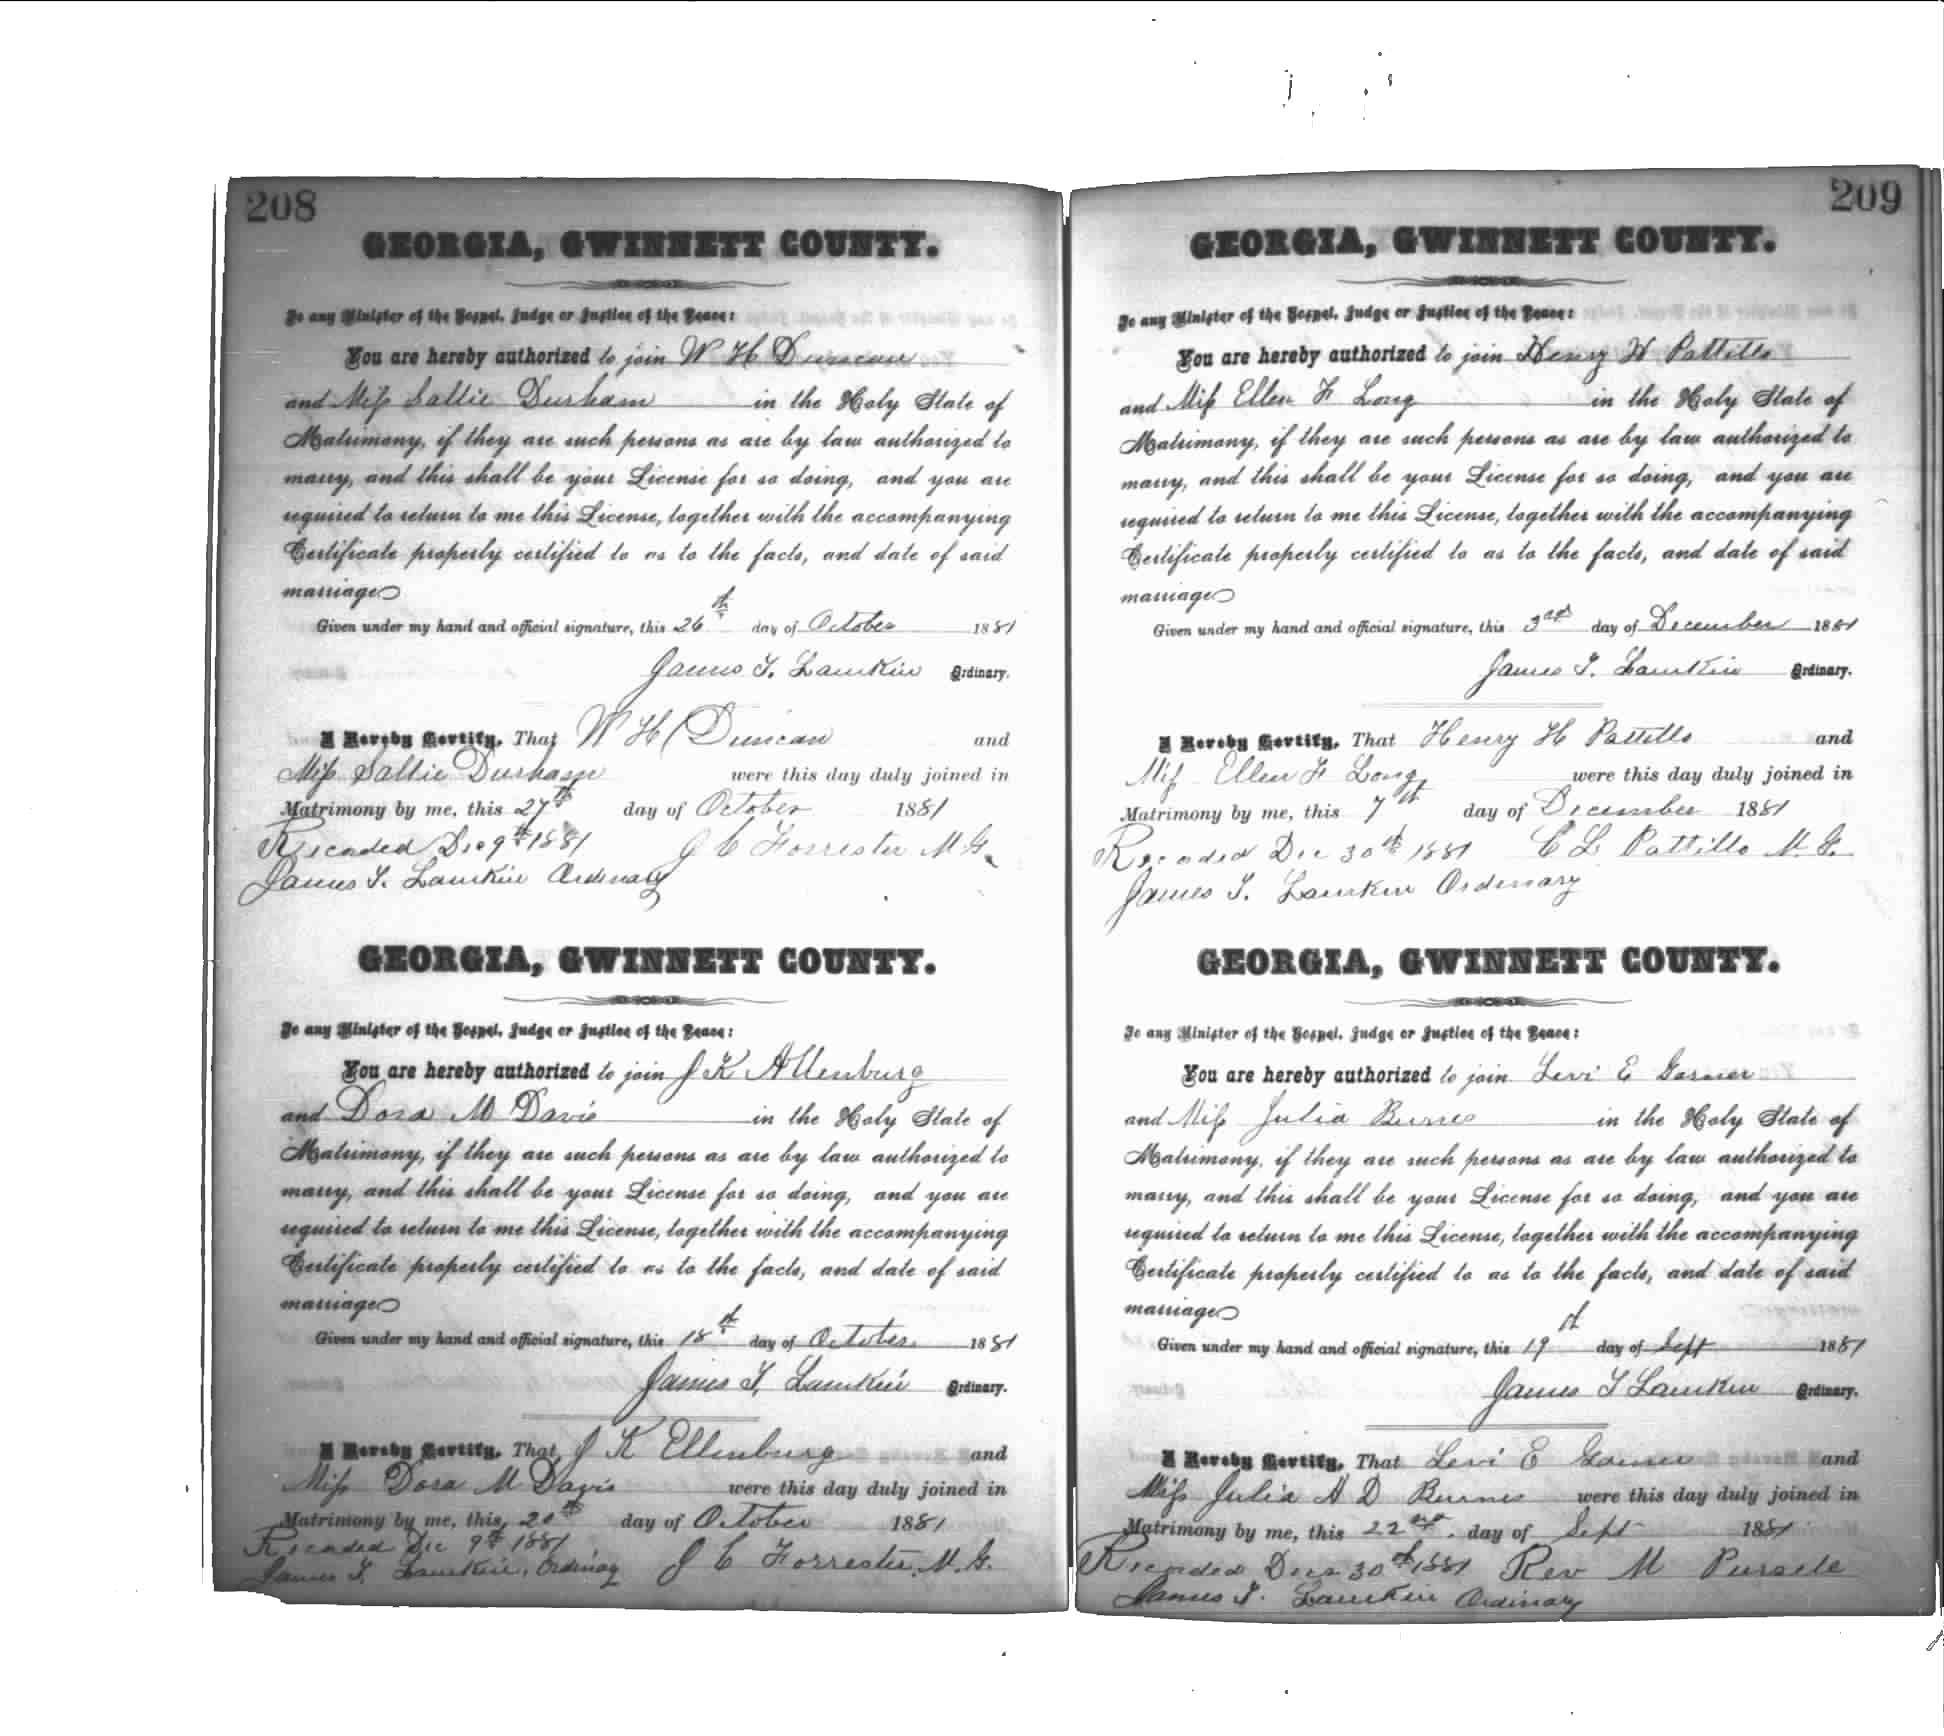 208
GEORGIA, GWINNETT COUNTY.
To any Minister of the Gospel, Judge or Justice of the Peace:
You are hereby authorized to join W H Duncan
and Miss Sallie Durham in the Holy State of
Matrimony, if they are such persons as are by law authorized to
marry, and this shall be your License for so doing, and you are
required to return to me this License, together with the accompanying
Certificate properly certified to as to the facts, and date of said
marriage
Given under my hand and official signature, this 26th day of October 1881
James T. Lamkin Ordinary.
I Hereby Certify, That W H Duncan and
Miss Sallie Durham were this day duly joined in
Matrimony by me, this 27th day of October 1881
Recorded Dec 9th 1881 J C Forrester M. G.
James T. Lamkin Ordinary
GEORGIA, GWINNETT COUNTY.
To any Minister of the Gospel, Judge or Justice of the Peace:
You are hereby authorized to join J K Allenburg
and Dora M Davis in the Holy State of
Matrimony, if they are such persons as are by law authorized to
marry, and this shall be your License for so doing, and you are
required to return to me this License, together with the accompanying
Certificate properly certified to as to the facts, and date of said
marriage
Given under my hand and official signature, this 18th day of October 1881
James T. Lamkin Ordinary.
I Hereby Certify, That J K Ellenburg and
Miss Dora M Davis were this day duly joined in
Matrimony by me, this 20th day of October 1881
Recorded Dec 9th 1881
James T. Lamkin, Ordinary J C Forrester, M. G.
209
GEORGIA, GWINNETT COUNTY.
To any Minister of the Gospel, Judge or Justice of the Peace:
You are hereby authorized to join Henry H Pattillo
and Miss Ellen F Long in the Holy State of
Matrimony, if they are such persons as are by law authorized to
marry, and this shall be your License for so doing, and you are
required to return to me this License, together with the accompanying
Certificate properly certified to as to the facts, and date of said
marriage
Given under my hand and official signature, this 3rd day of December 1881
James T. Lamkin Ordinary.
I Hereby Certify, That Henry H Pattillo and
Miss Ellen F Long were this day duly joined in
Matrimony by me, this 7th day of December 1881
Recorded Dec 30th 1881 C L Pattillo M. G.
James T. Lamkin Ordinary
GEORGIA, GWINNETT COUNTY.
To any Minister of the Gospel, Judge or Justice of the Peace:
You are hereby authorized to join Levi E Garner
and Miss Julia Burnes in the Holy State of
Matrimony, if they are such persons as are by law authorized to
marry, and this shall be your License for so doing, and you are
required to return to me this License, together with the accompanying
Certificate properly certified to as to the facts, and date of said
marriage
Given under my hand and official signature, this 19th day of Sept 1881
James T Lamkin Ordinary.
I Hereby Certify, That Levi E Garner and
Miss Julia A D Burnes were this day duly joined in
Matrimony by me, this 22nd day of Sept 1881
Recorded Dec 30th 1881 Rev M
James T. Lamkin Ordinary